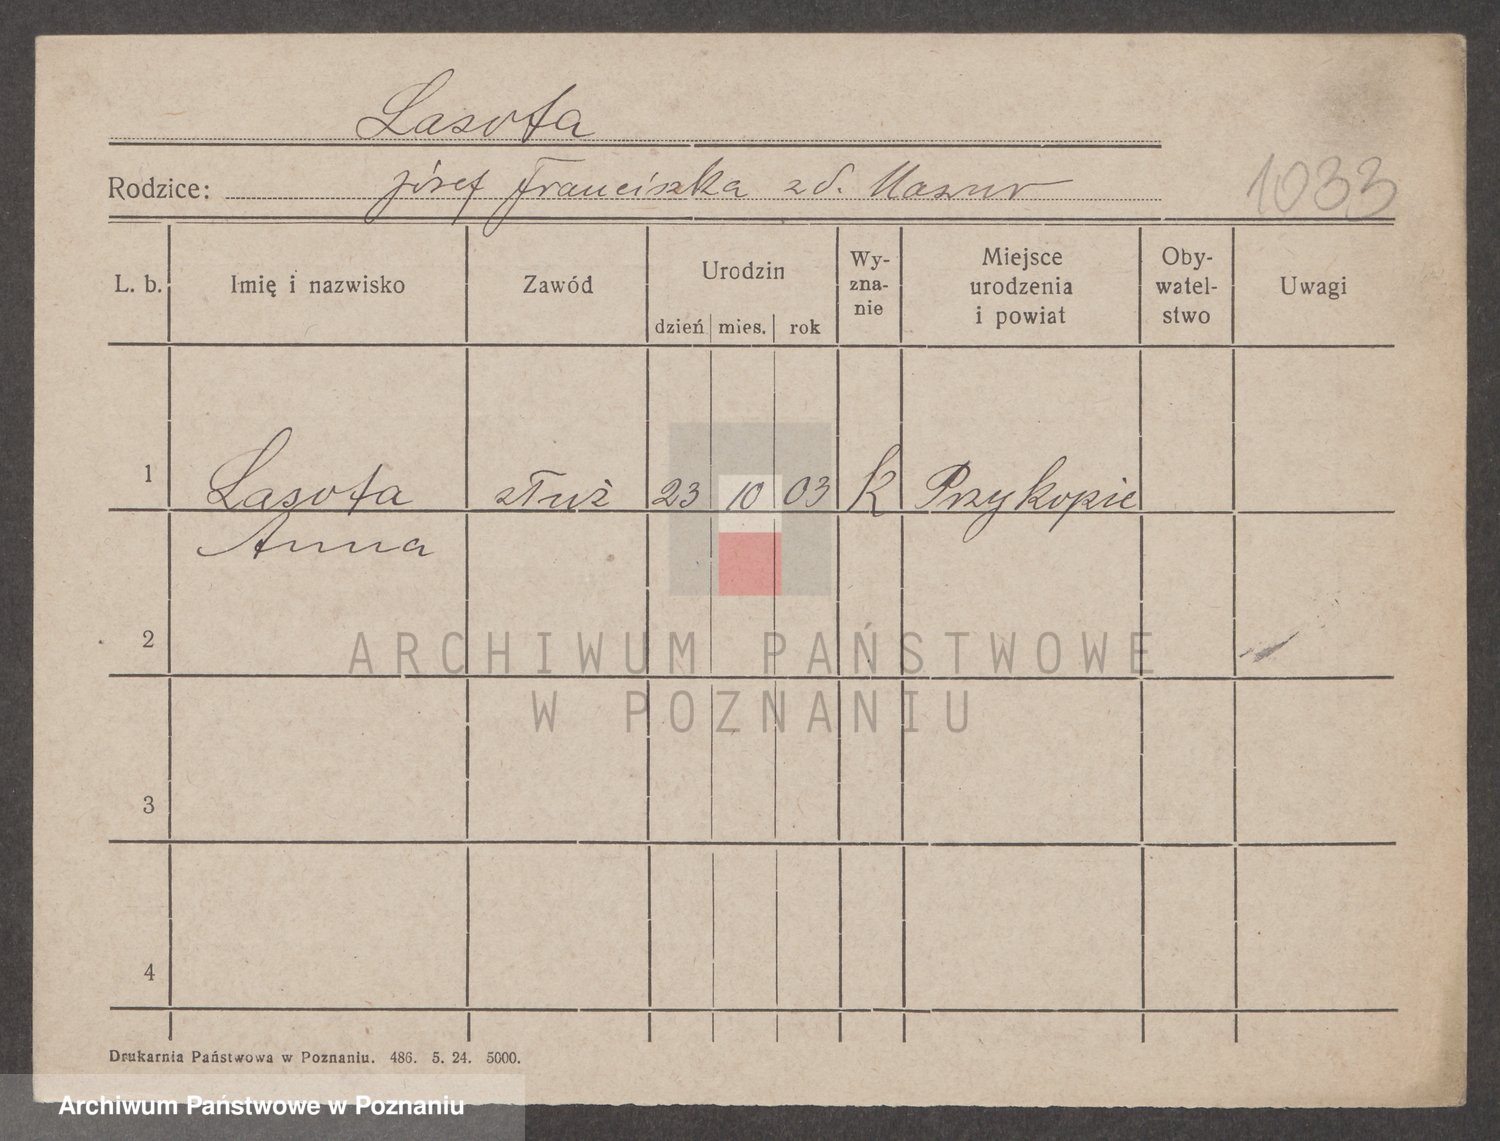 Lasota
Rodzice: józef Franciszka zd. Mazur
1033
L. b. Imię i nazwisko Zawód Urodzin dzień mies. rok Wy-zna-nie Miejsce urodzenia i powiat Oby-watel-stwo Uwagi
1 Lasota służ 23 10 03 k Przykopie
Anna
2
3
4
ARCHIWUM PAŃSTWOWE
W POZNANIU
Drukarnia Państwowa w Poznaniu. 486. 5. 24. 5000.
Archiwum Państwowe w Poznaniu